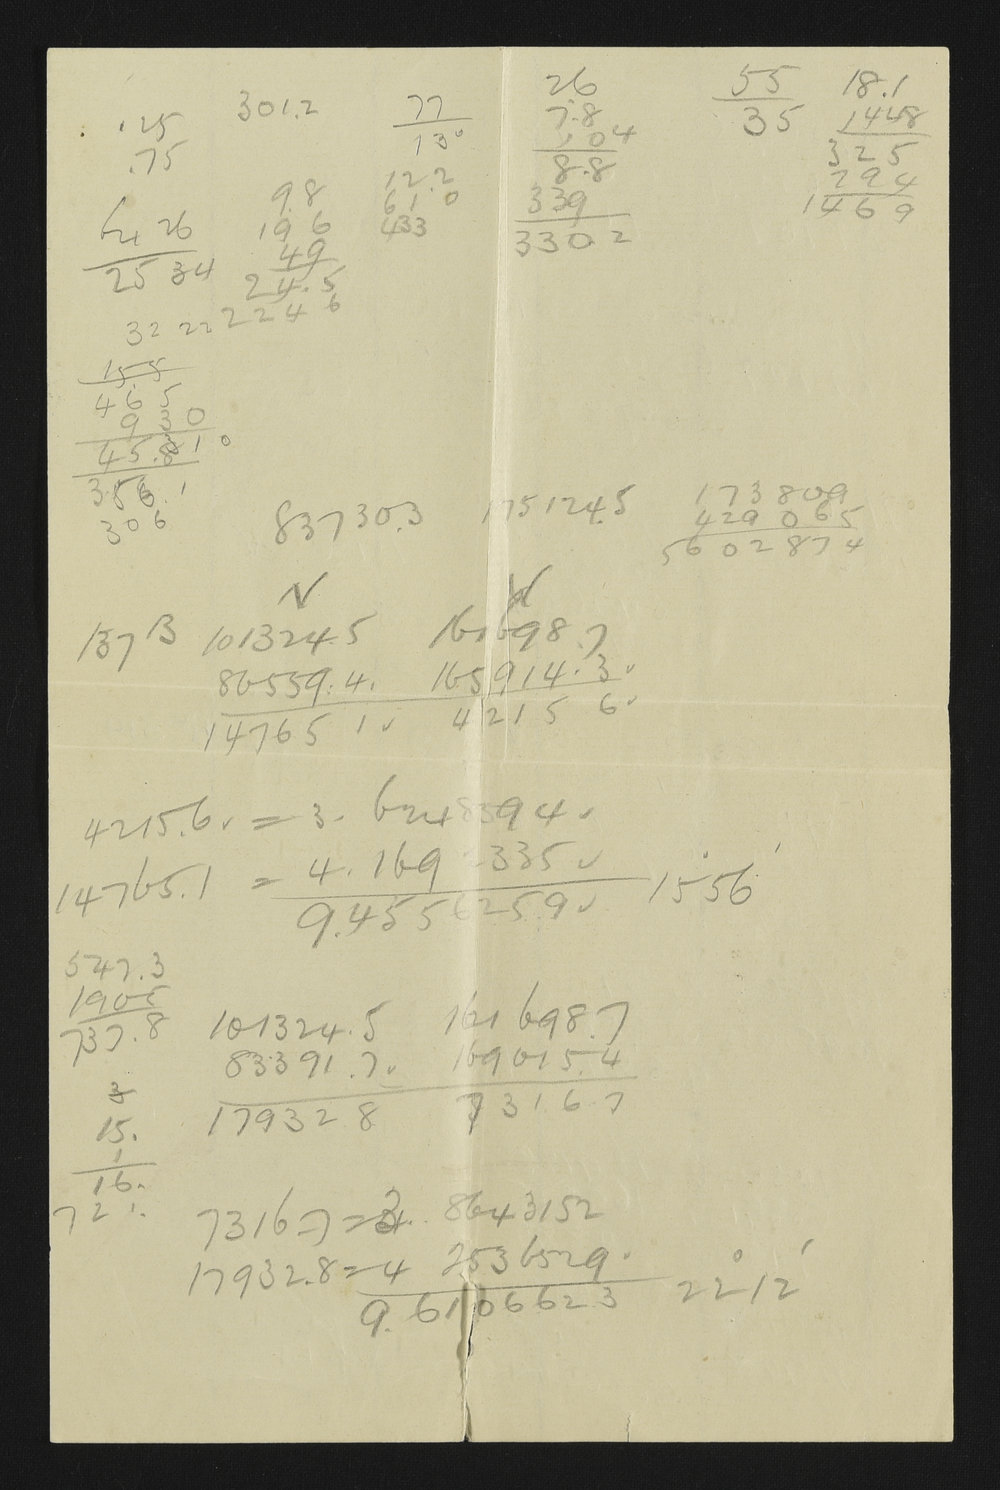 .25
.75
301.2
77
13°
26
7.8
1 04
8.8
339
3302
55
35
18.1
1448
325
294
1469
9.8
196
49
24.5
2246
12.2
61 0
433
621 26
25 34
32 22
155
465
930
45.81 0
356.1
306
83730.3 175124.5
173809
429065
5602874
N W
137 B 101324.5 161698.7
86559.4. 165914.3
14765 1 4215 6
4215.6 = 3. 6248394
14765.1 = 4. 169 2335
9.455 6259 15° 56'
547.3
1905
737.8
101324.5 161698.7
83391.7 169015.4
17932 8 7316.7
3
15.
1
16.
721.
7316.7 = 3. 8643152
17932.8 = 4 2536529
9.6106623 22° 12'